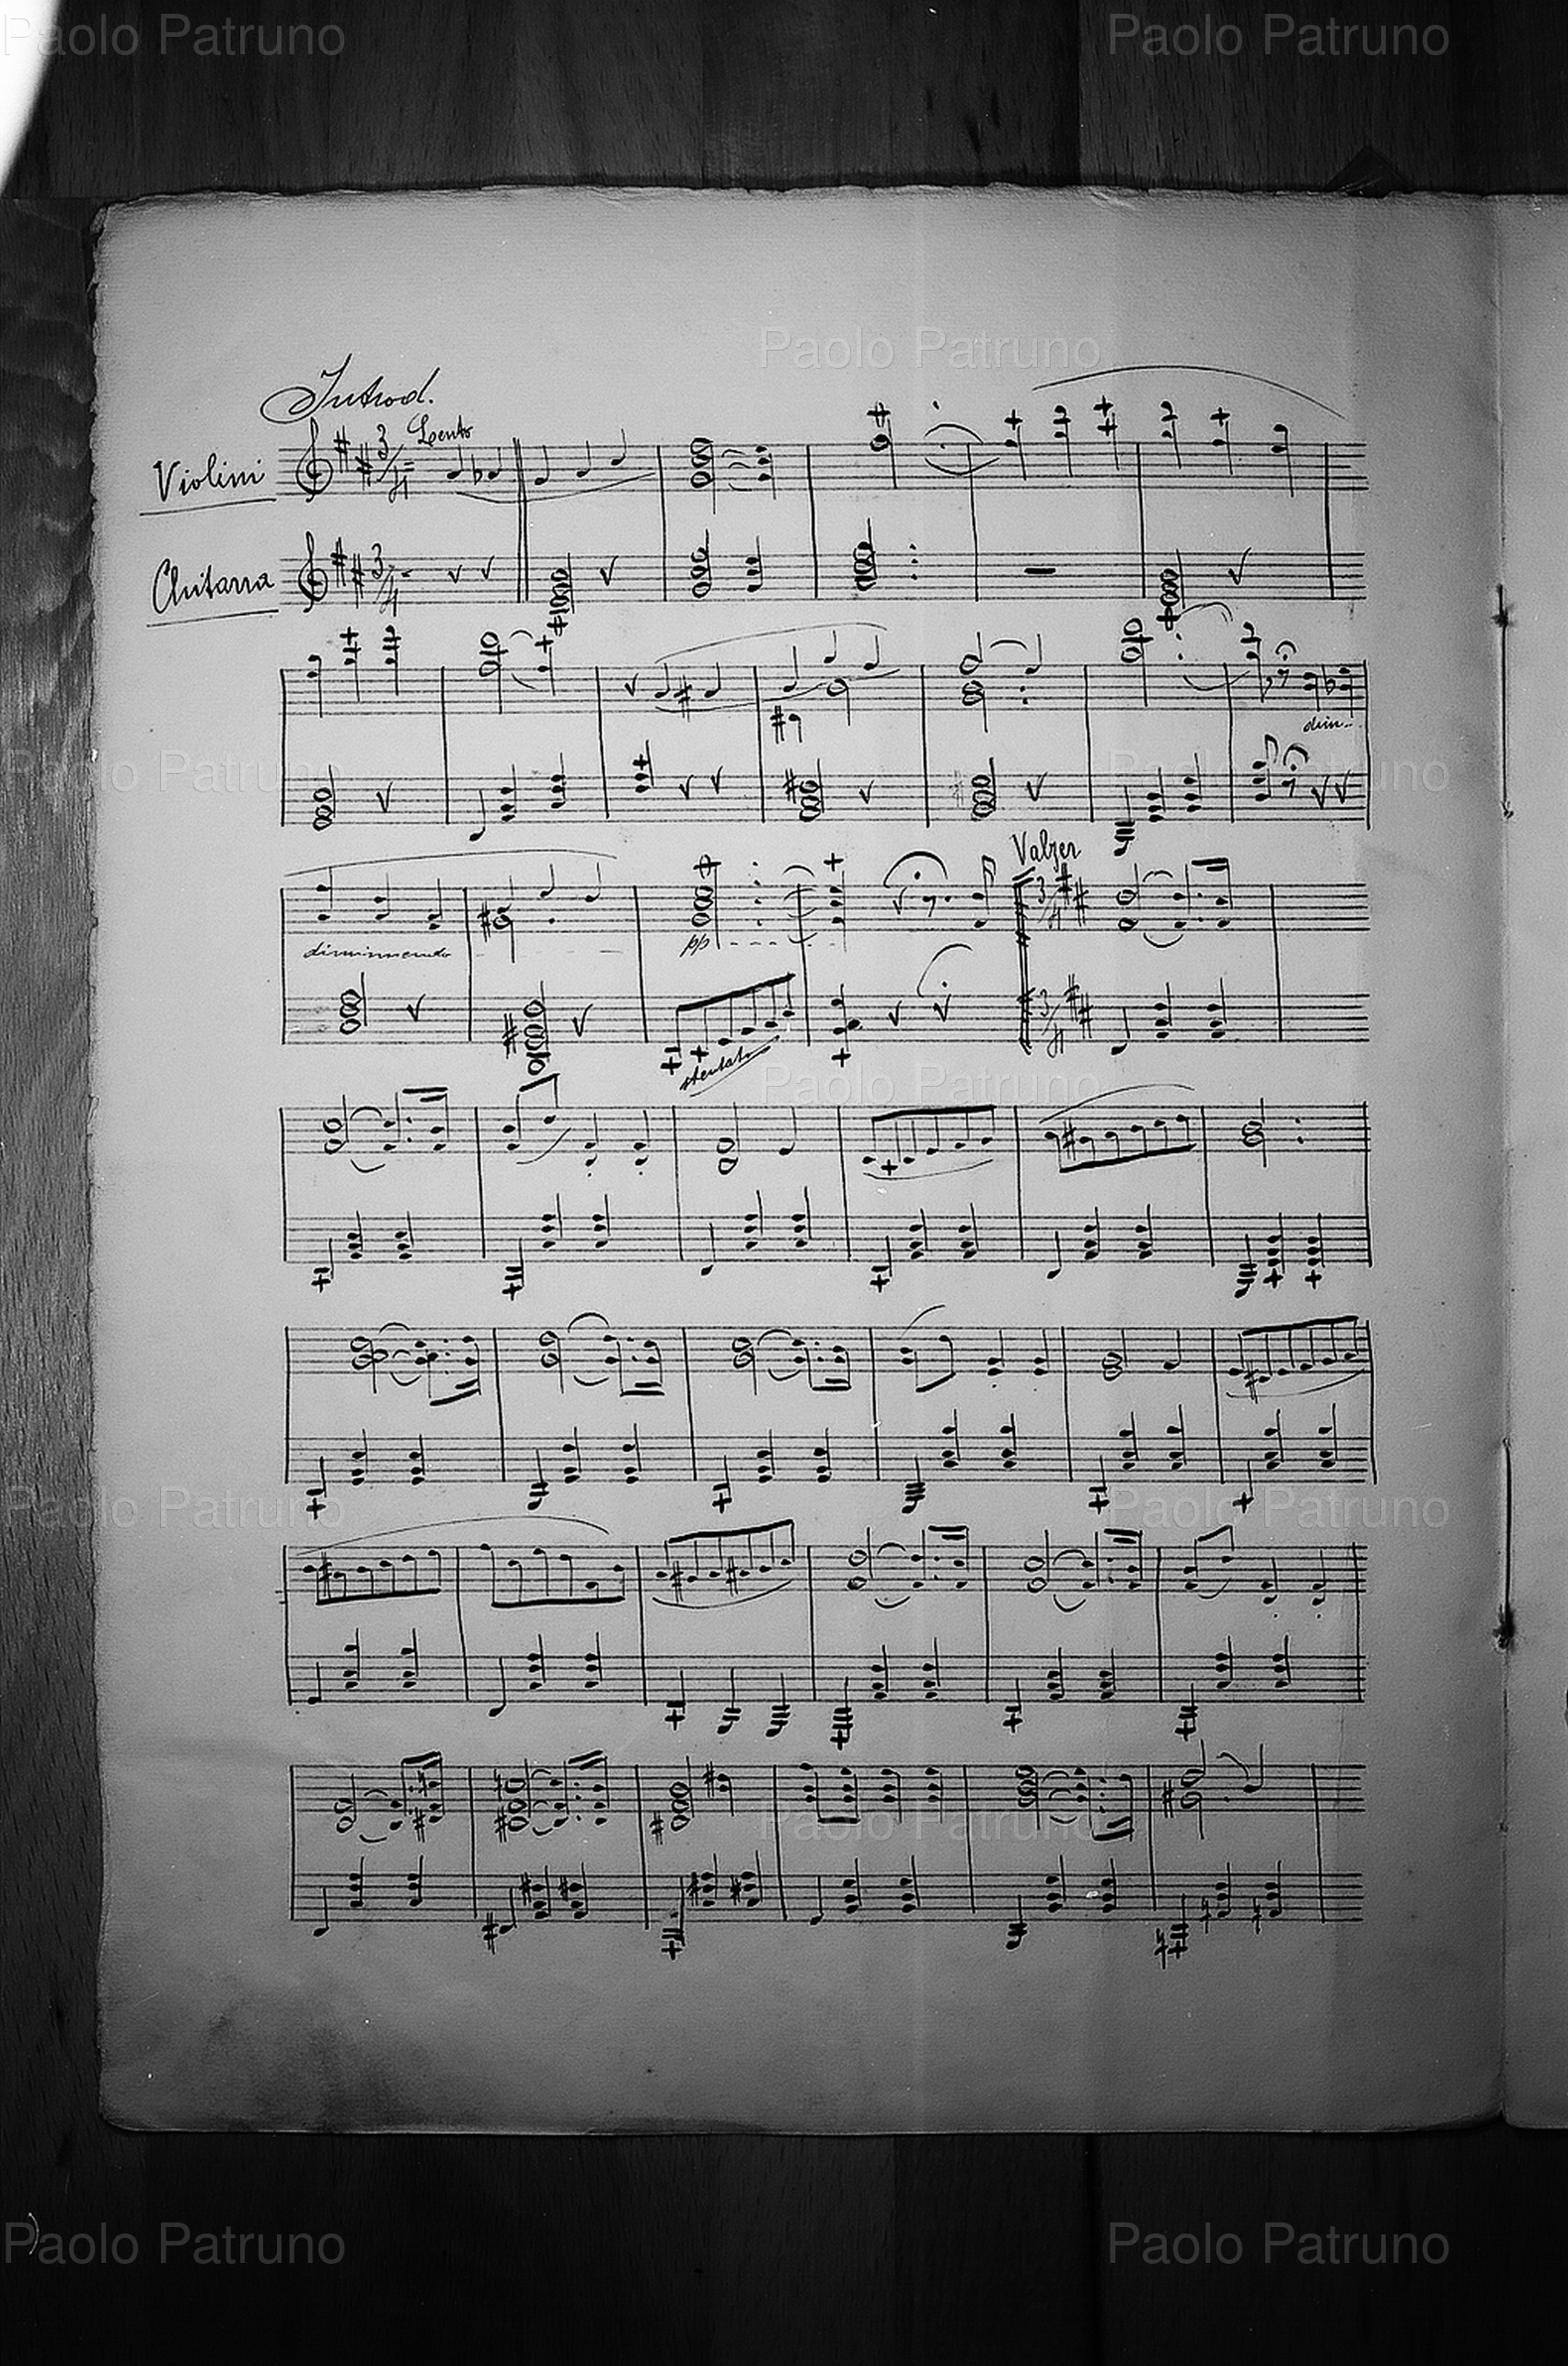 Paolo Patruno Paolo Patruno
Paolo Patruno
Introd.
Lento
Violini
3/4
Chitarra
3/4
dim..
Paolo Patruno Paolo Patruno
Valzer
3/4
diminuendo
pp
3/4
stentato
Paolo Patruno
Paolo Patruno Paolo Patruno
Paolo Patruno
Paolo Patruno Paolo Patruno